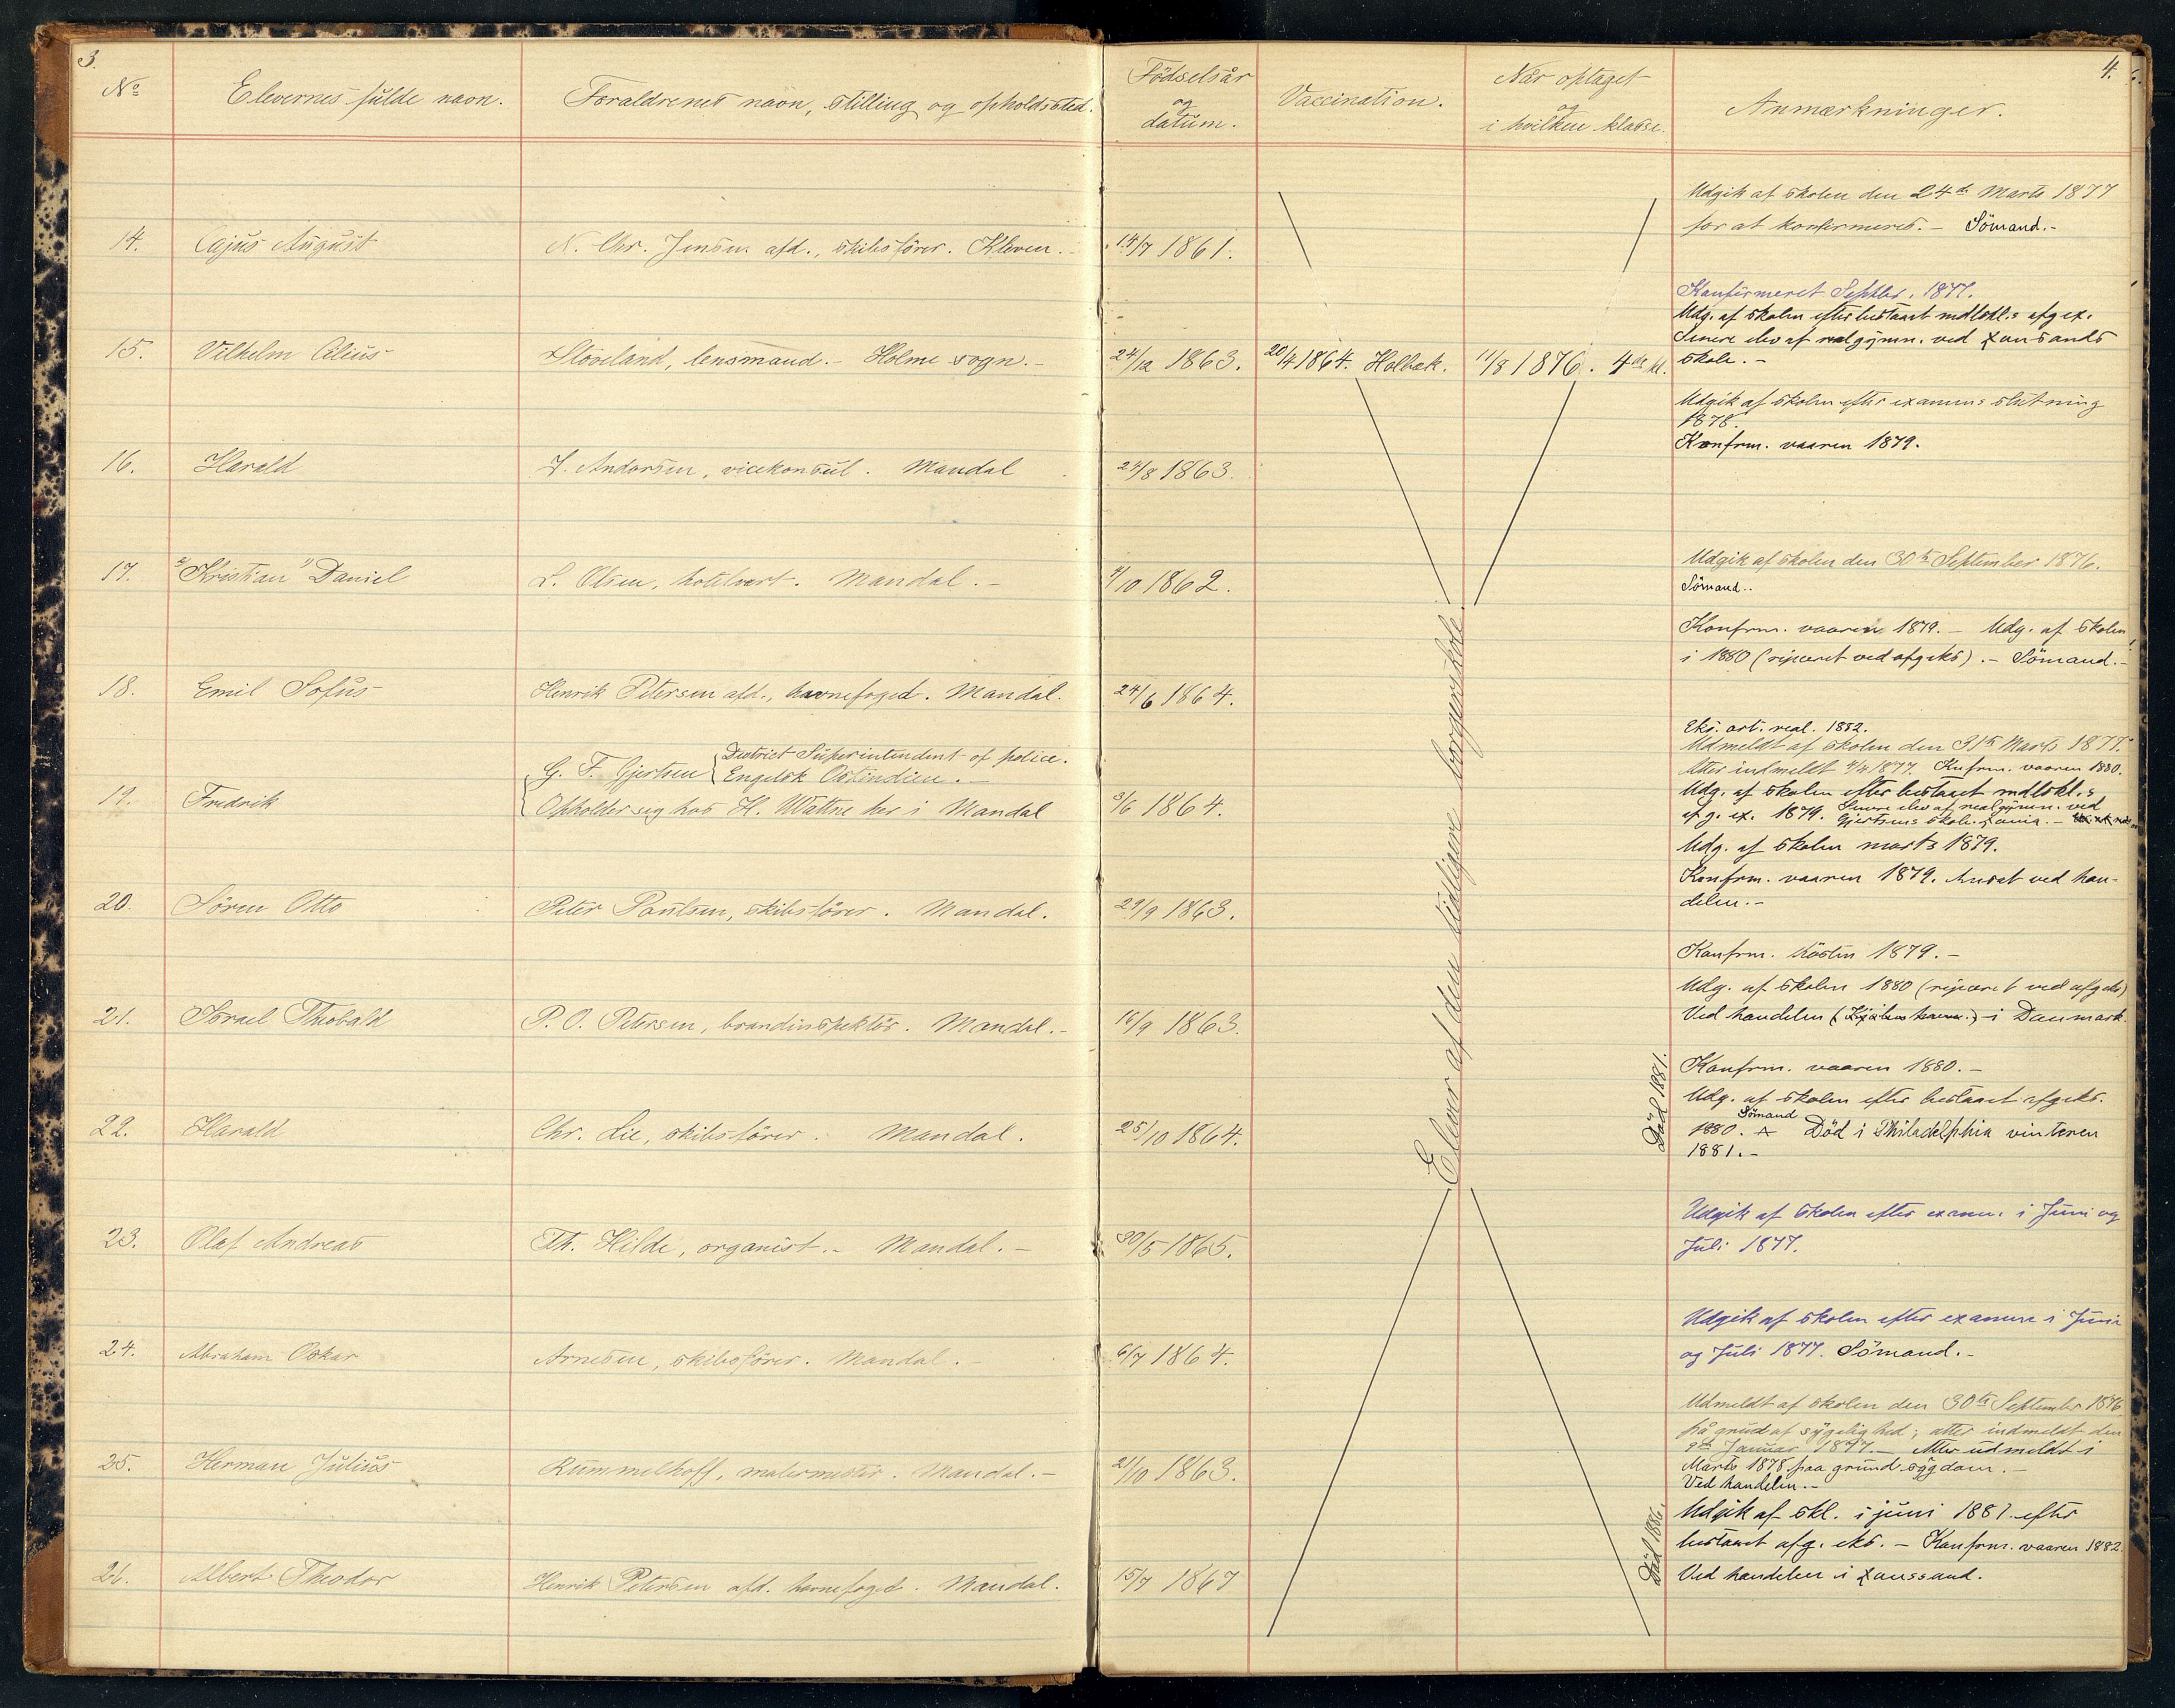 3.
4.
No Elevernes fulde navn. Forældrenes navn, stilling og opholdssted. Födselsår og datum. Vaccination. Når optaget og i hvilken klasse. Anmærkninger.
14. Cajus August N. Chr. Jensen afd., skibsförer. Kleven. 14/7 1861.
Udgik af skolen den 24de Marts 1877
for at konfirmeres. – Sömand. –
15. Vilhelm Cilius Stöveland, lensmand. – Holme sogn. – 24/12 1863. 20/4 1864. Holbæk. 11/8 1876. 4de kl.
Konfirmeret Septbr. 1877.
Udg. af skolen efter bestaaet mdlskl.s afg ex.
Senere elev af realgymn. ved Xansands
skole. –
16. Harald J. Andorsen, vicekonsul. Mandal 24/8 1863.
Udgik af skolen efter examens slutning
1878.
Konfrm. vaaren 1879.
17. "Kristian" Daniel L. Olsen, hotelvært. Mandal. – 4/10 1862.
Udgik af skolen den 30te September 1876.
Sömand..
18. Emil Sofus Henrik Petersen afd., havnefoged. Mandal. 24/6 1864.
Konfrm. vaaren 1879. – Udg. af skolen
i 1880 (rejiceret ved afg eks). – Sömand. –
19. Fredrik G. F. Gjertsen { District Superintendent of police.
Engelsk Ostindien. –
Opholder sig hos H. Wattne her i Mandal 3/6 1864.
Eks. art. real. 1882.
Udmeldt af skolen den 31te Marts 1877.
Atter indmeldt 4/4 1877. Knfrm. vaaren 1880.
Udg. af skolen efter bestaaet mdlskl.s
afg. ex. 1879. Senere elev af realgymn. ved
Gjertsens skole. Xania. –
20. Sören Otto Peter Paulsen, skibsförer. Mandal. 29/9 1863.
Udg. af skolen marts 1879.
Konfrm. vaaren 1879. Ansat ved han-
delen. –
21. Israel Theobald P. O. Petersen, brandinspektör. Mandal. – 16/9 1863.
Konfrm. hösten 1879. –
Udg. af skolen 1880 (rejiceret ved afg eks)
Ved handelen (Kjöbenhavn.) i Danmark.
22. Harald Chr. Lie, skibsförer. Mandal. 25/10 1864.
Död 1881.
Konfrm. vaaren 1880. –
Udg. af skolen efter bestaaet afg eks.
1880. Sömand Död i Philadelphia vinteren
1881. –
23. Olaf Andreas Th. Hilde, organist. – Mandal. – 30/5 1865.
Udgik af skolen efter exame. i Juni og
Juli 1877.
24. Abraham Oskar Arnesen, skibsförer. Mandal. – 6/7 1864.
Udgik af skolen efter examen i Juni
og Juli 1877. Sömand. –
25. Herman Julius Rummelhoff, malermester. Mandal. – 21/10 1863.
Udmeldt af skolen den 30te September 1876
på grund af sygelighed; atter indmeldt den
9de Januar 1877. – Atter udmeldt i
Marts 1878 paa grund sygdom. –
Ved handelen. –
26. Albert Theodor Henrik Petersen afd. havnefoged. Mandal. 15/7 1867
Död 1886.
Udgik af skl. i juni 1881 efter
bestaaet afg. eks. – Konfrm. vaaren 1882
Ved handelen i Xanssand.
Elever af den tidligere borgerskole.